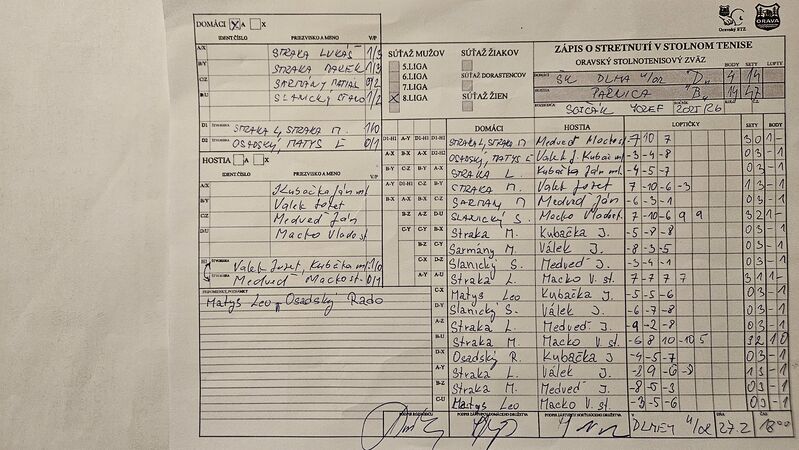 DOMÁCI X A X
IDENT. ČÍSLO PRIEZVISKO A MENO V/P
A/X STRAKA LUKÁŠ 1/3
B/Y STRAKA MAREK 1/3
C/Z SARMÁNY
D/U SLANICKÝ 1/2
D1 ŠTVORHRA STRAKA L, STRAKA M. 1/0
D2 ŠTVORHRA OSADSKÝ, MATYS L 0/1
HOSTIA A X
IDENT. ČÍSLO PRIEZVISKO A MENO V/P
A/X Kubačka Ján ml.
B/Y Valek Jozef
C/Z Medveď Ján
D/U Macko Vladost
H1 ŠTVORHRA Valek Jozef, Kubačka ml. 1/0
Medveď Mackost. 0/1
PRIPOMIENKY, POZNÁMKY
Matys Leo, Osadský Rado
SÚŤAŽ MUŽOV
5.LIGA
6.LIGA
7.LIGA
X 8.LIGA
SÚŤAŽ ŽIAKOV
SÚŤAŽ DORASTENCOV
SÚŤAŽ ŽIEN
Oravský STZ
ORAVA
ZÁPIS O STRETNUTÍ V STOLNOM TENISE
ORAVSKÝ STOLNOTENISOVÝ ZVÄZ
BODY SETY LOPTY
DOMÁCI ŠK DLHÁ n/Or "D" 4 14
HOSTIA PÁRNICA "B" 14 47
ROZHODCA JOZEF
DOMÁCI HOSTIA LOPTIČKY SETY BODY
STRAKA L, STRAKA M Medveď Mackost 7 10 7 3 0 1 -
OSADSKÝ, MATYS L Valek J. Kubač ml -3 -4 -8 0 3 - 1
STRAKA L. Kubačka Ján ml -4 -5 -7 0 3 - 1
STRAKA M. Valek Jozef 7 -10 -6 -3 1 3 - 1
SARMÁNY M Medveď Ján -6 -3 -1 0 3 - 1
SLANICKÝ S. Macko Vladost. -7 -10 6 9 9 3 2 1 -
Straka M. Kubačka J. -5 -8 -8 0 3 - 1
Sarmány M. Válek J. -8 -3 -5 0 3 - 1
Slanický S. Medveď J. -3 -4 -1 0 3 - 1
Straka L. Macko V. st. 3 1 1 -
Matys Leo Kubačka J. -5 -5 -6 0 3 - 1
Slanický S. Válek J. -6 -7 -8 0 3 - 1
Straka L. Medveď J. -9 -2 -8 0 3 - 1
Straka M. Macko V. st. -6 8 10 -10 5 3 2 1 0
Osadský R. Kubačka J -4 -5 -7 0 3 - 1
Straka L. Válek J. -8 9 -6 -8 1 3 - 1
Straka M. Medveď J. -8 -5 -3 0 3 - 1
Matys Leo Macko V. st. -3 -5 -6 0 3 - 1
PODPIS ROZHODCU PODPIS VEDÚCEHO DOMÁCEHO DRUŽSTVA PODPIS VEDÚCEHO HOSŤUJÚCEHO DRUŽSTVA V DLHEJ n/Or DŇA 27.2 ČAS 18 00